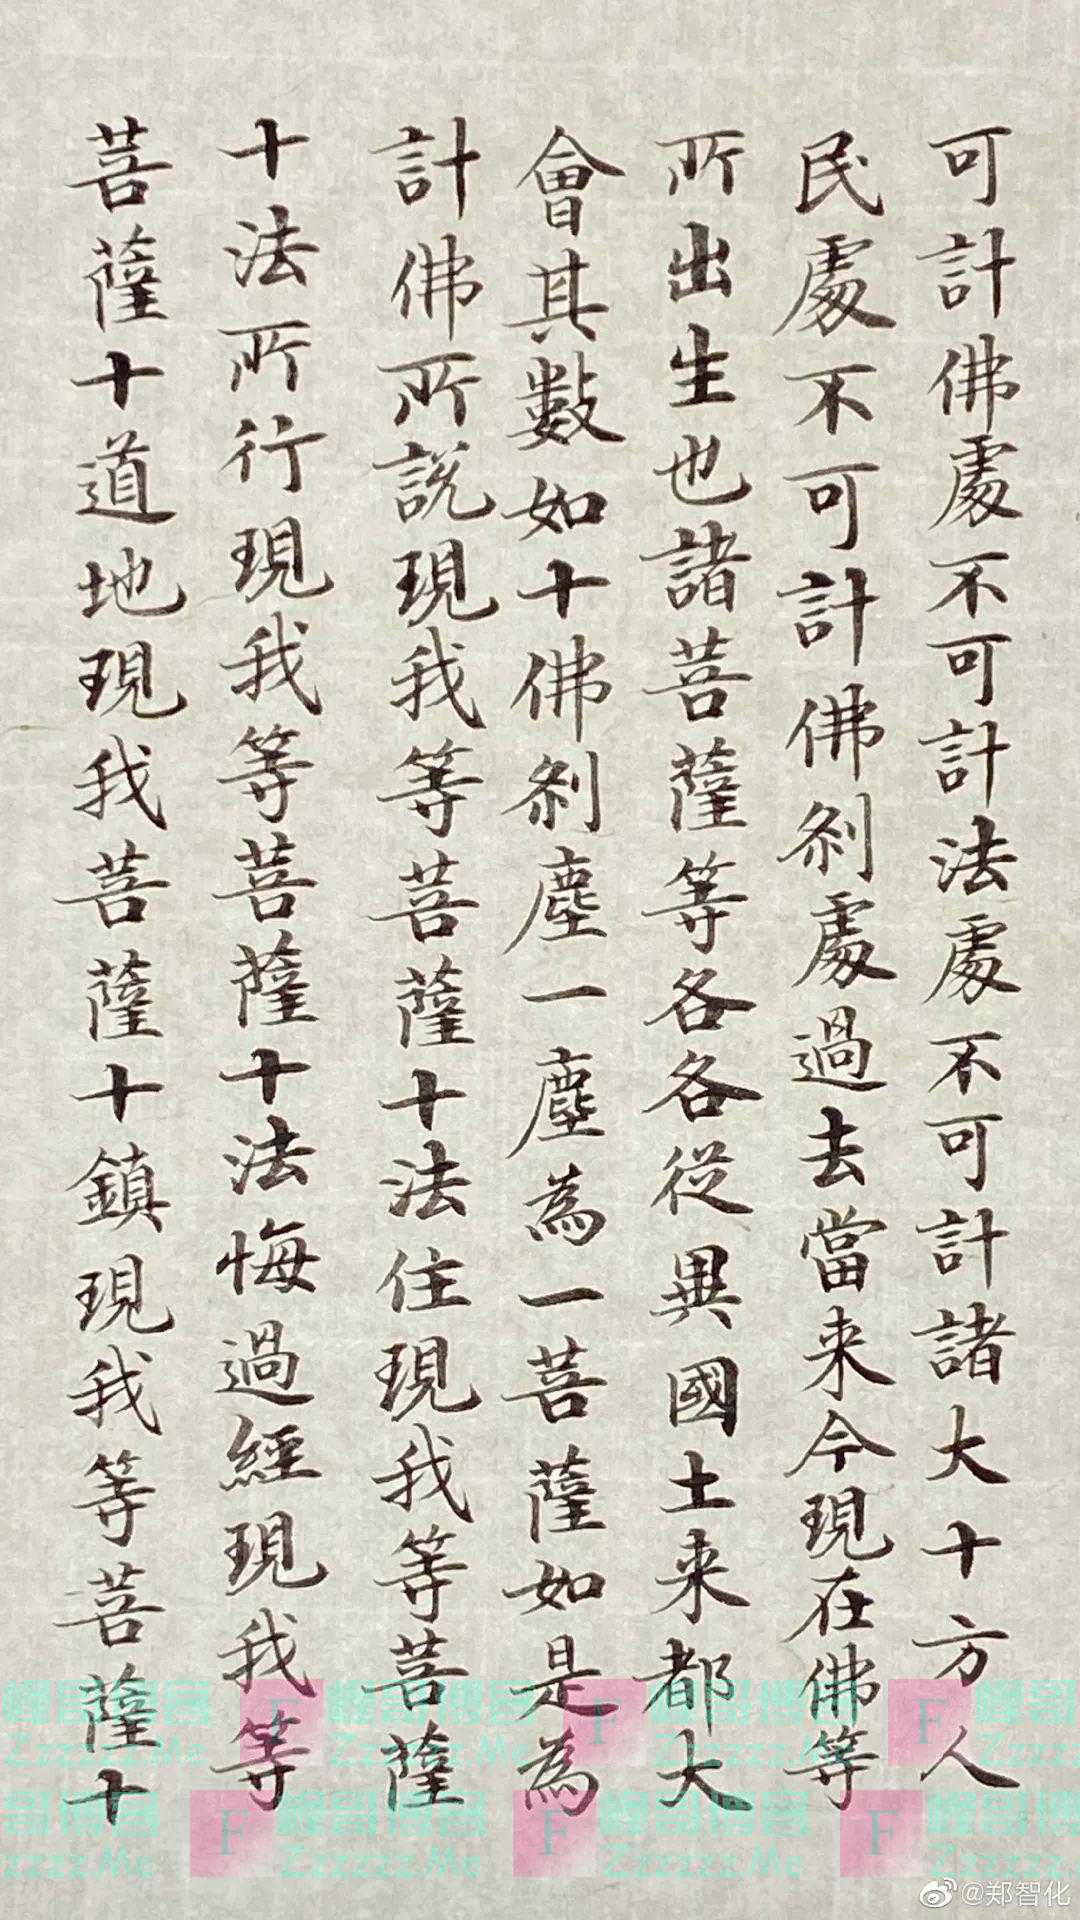 可計佛處不可計法處不可計諸大十方人
民處不可計佛剎處過去當来今現在佛等
所出生也諸菩薩等各各從異國土来都大
會其數如十佛剎塵一塵為一菩薩如是為
計佛所說現我等菩薩十法住現我等菩薩
十法所行現我等菩薩十法悔過經現我等
菩薩十道地現我菩薩十鎮現我等菩薩十
F
F
F
Zzzzzz.Me
Zzzzzz.Me
Zzzzzz.Me
F
F
F
Zzzzzz.Me
Zzzzzz.Me
Zzzzzz.Me
@郑智化